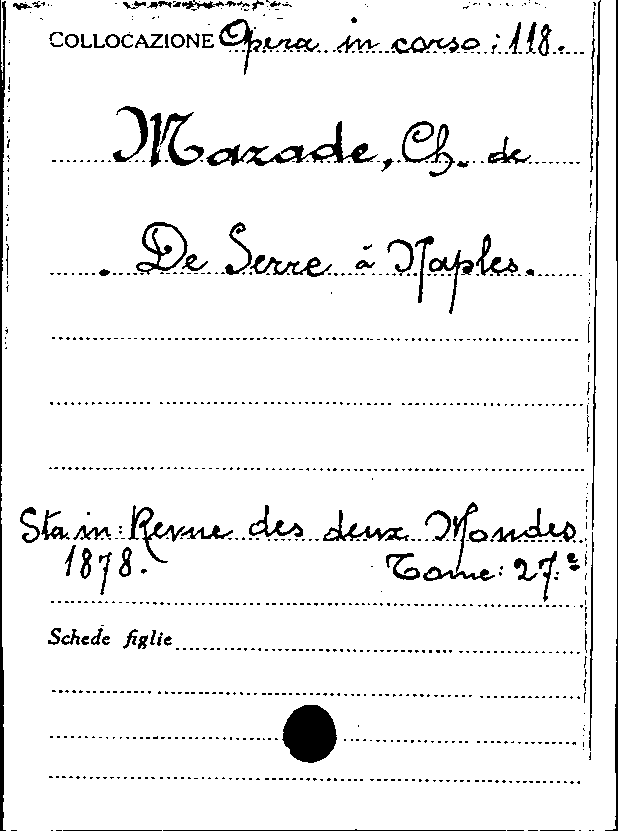 COLLOCAZIONE Opera in corso: 118.
Mazade, Ch. de
. De Serre à Naples.
Sta in: Revue des deux Mondes
1878. Tome: 27:e
Schede figlie